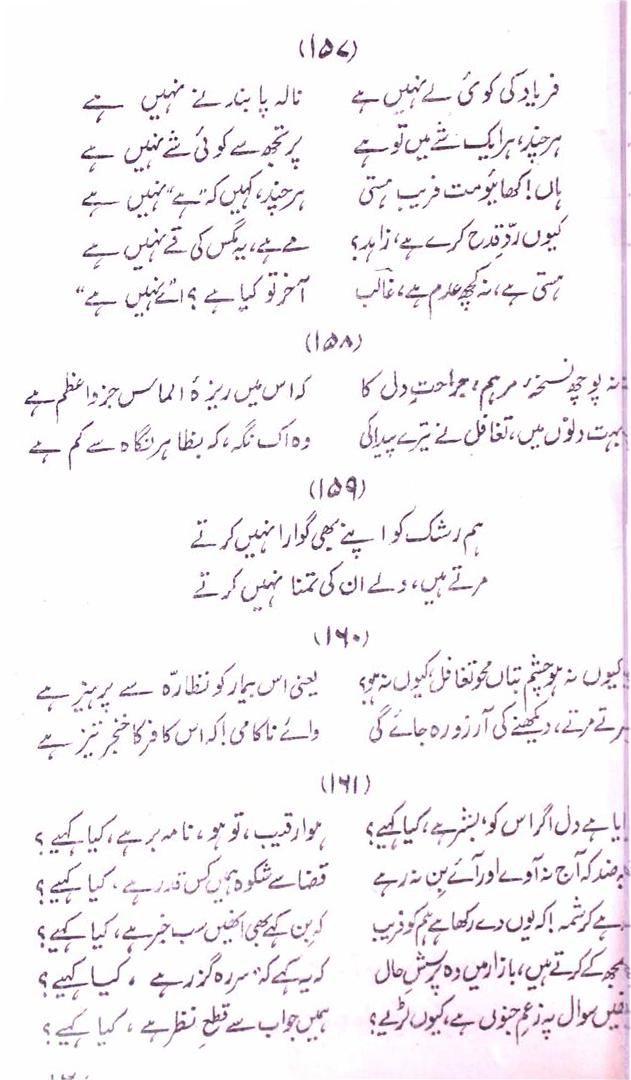 (۱۵۷)
فریاد کی کوئی لے نہیں ہے نالہ پابندِ نے نہیں ہے
ہرچند، ہر ایک شے میں تو ہے پر تجھ سے کوئی شے نہیں ہے
ہاں! کھائیو مت فریبِ ہستی ہرچند، کہیں کہ "ہے" نہیں ہے
کیوں ردِّ قدح کرے ہے، زاہد؟ مے ہے، یہ مگس کی قے نہیں ہے
ہستی ہے، نہ کچھ عدم ہے، غالب آخر تو کیا ہے؟ "اے نہیں ہے"
(۱۵۸)
نہ پوچھ نسخۂ مرہم، جراحتِ دل کا کہ اس میں ریزۂ الماس جزوِ اعظم ہے
بہت دنوں میں، تغافل نے تیرے پیدا کی وہ اک نگہ، کہ بظاہر نگاہ سے کم ہے
(۱۵۹)
ہم رشک کو اپنے بھی گوارا نہیں کرتے
مرتے ہیں، ولے ان کی تمنا نہیں کرتے
(۱۶۰)
کیوں نہ ہو چشمِ بتاں محوِ تغافل، کیوں نہ ہو؟ یعنی اس بیمار کو نظارّہ سے پرہیز ہے
مرتے مرتے، دیکھنے کی آرزو رہ جائے گی وائے ناکامی! کہ اس کافر کا خنجر تیز ہے
(۱۶۱)
دیا ہے دل اگر اس کو، بشر ہے، کیا کہیے؟ ہوا رقیب، تو ہو، نامہ بر ہے، کیا کہیے؟
یہ ضد کہ آج نہ آوے اور آئے بِن نہ رہے قضا سے شکوہ ہمیں کس قدر ہے، کیا کہیے؟
زہے کرشمہ! کہ یوں دے رکھا ہے ہم کو فریب کہ بِن کہے بھی انھیں سب خبر ہے، کیا کہیے؟
سمجھ کے کرتے ہیں، بازار میں وہ پرسشِ حال کہ یہ کہے کہ، سرِ رہ گزر ہے، کیا کہیے؟
انھیں سوال پہ زعمِ جنوں ہے، کیوں لڑیے؟ ہمیں جواب سے قطعِ نظر ہے، کیا کہیے؟